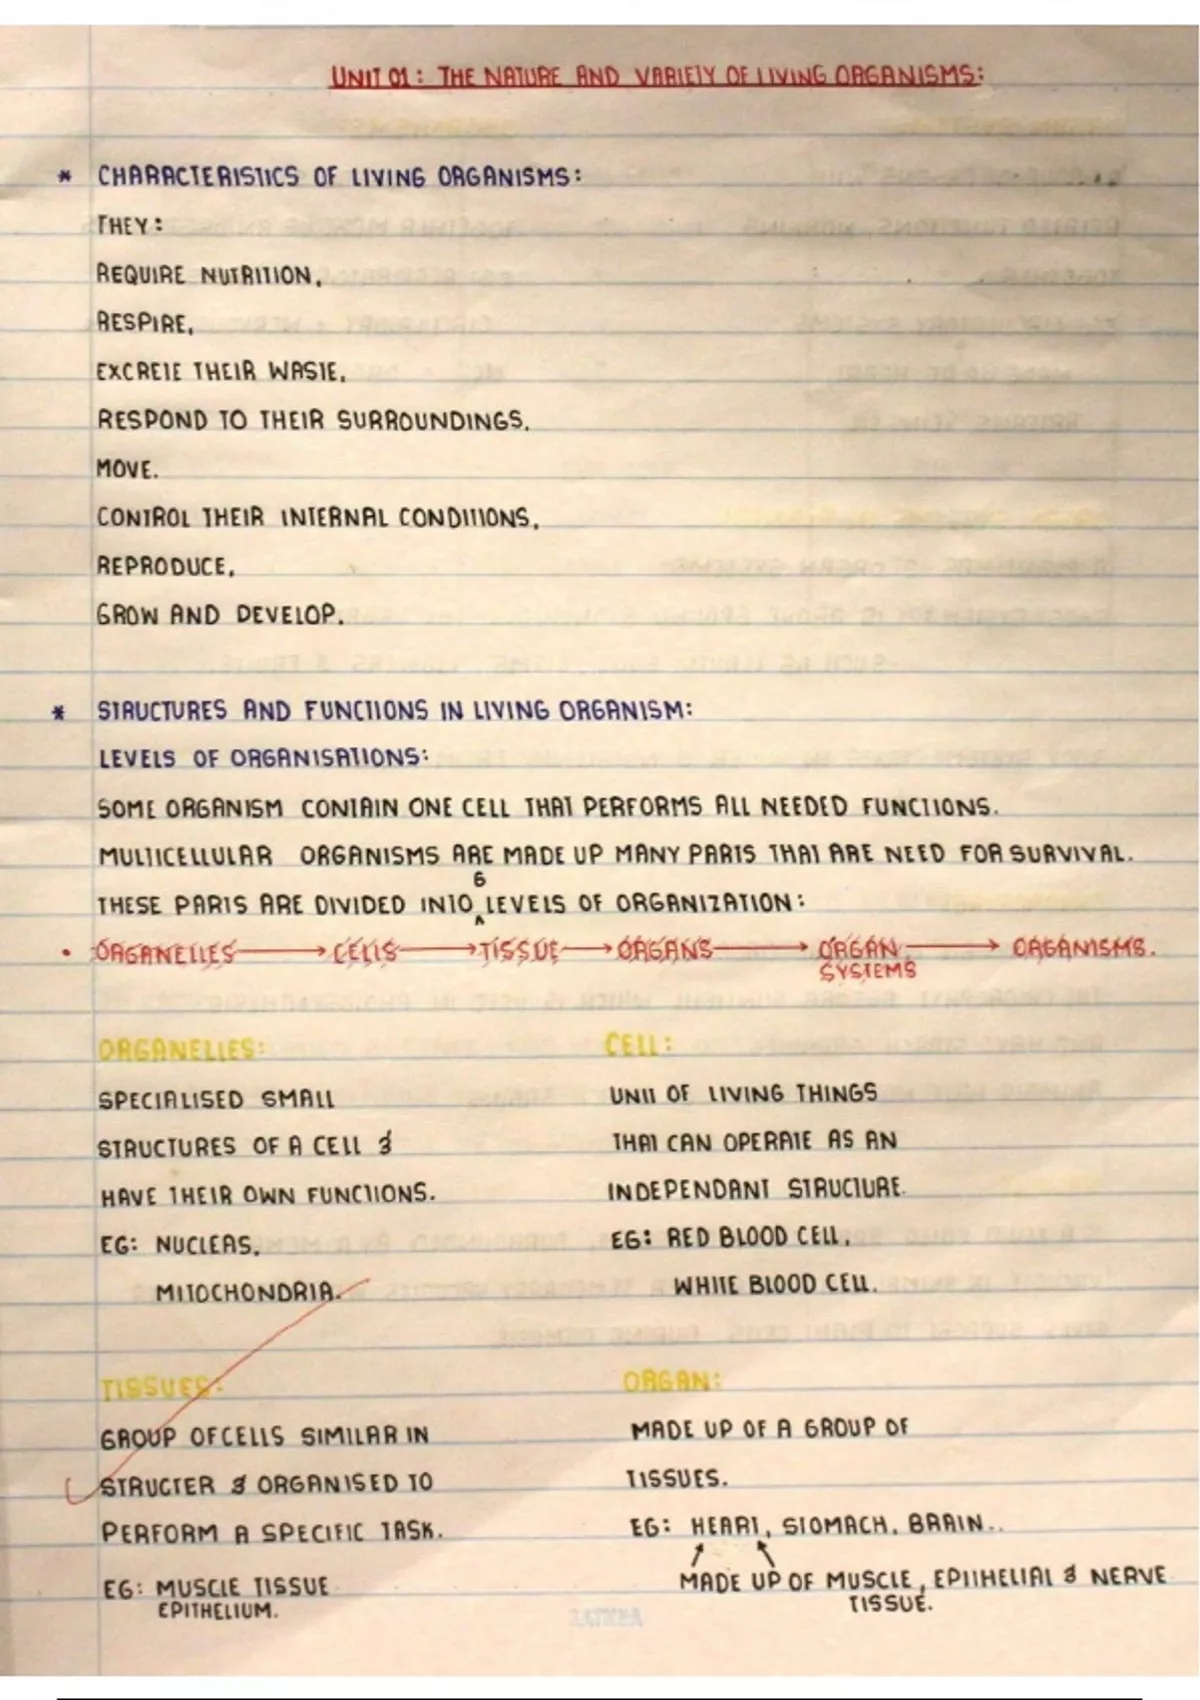 UNIT 01: THE NATURE AND VARIETY OF LIVING ORGANISMS:
* CHARACTERISTICS OF LIVING ORGANISMS:
THEY:
REQUIRE NUTRITION,
RESPIRE,
EXCRETE THEIR WASTE,
RESPOND TO THEIR SURROUNDINGS,
MOVE.
CONTROL THEIR INTERNAL CONDITIONS,
REPRODUCE,
GROW AND DEVELOP.
* STRUCTURES AND FUNCTIONS IN LIVING ORGANISM:
LEVELS OF ORGANISATIONS:
SOME ORGANISM CONTAIN ONE CELL THAT PERFORMS ALL NEEDED FUNCTIONS.
MULTICELLULAR ORGANISMS ARE MADE UP MANY PARTS THAT ARE NEED FOR SURVIVAL.
THESE PARTS ARE DIVIDED INTO 6 LEVELS OF ORGANIZATION:
• ORGANELLES → CELLS → TISSUE → ORGANS → ORGAN SYSTEMS → ORGANISMS.
ORGANELLES:
SPECIALISED SMALL
STRUCTURES OF A CELL &
HAVE THEIR OWN FUNCTIONS.
EG: NUCLEAS,
MITOCHONDRIA.
CELL:
UNIT OF LIVING THINGS
THAT CAN OPERATE AS AN
INDEPENDANT STRUCTURE.
EG: RED BLOOD CELL,
WHITE BLOOD CELL.
TISSUES:
GROUP OF CELLS SIMILAR IN
STRUCTER & ORGANISED TO
PERFORM A SPECIFIC TASK.
EG: MUSCLE TISSUE
EPITHELIUM.
ORGAN:
MADE UP OF A GROUP OF
TISSUES.
EG: HEART, STOMACH, BRAIN..
MADE UP OF MUSCLE, EPITHELIAL & NERVE
TISSUE.